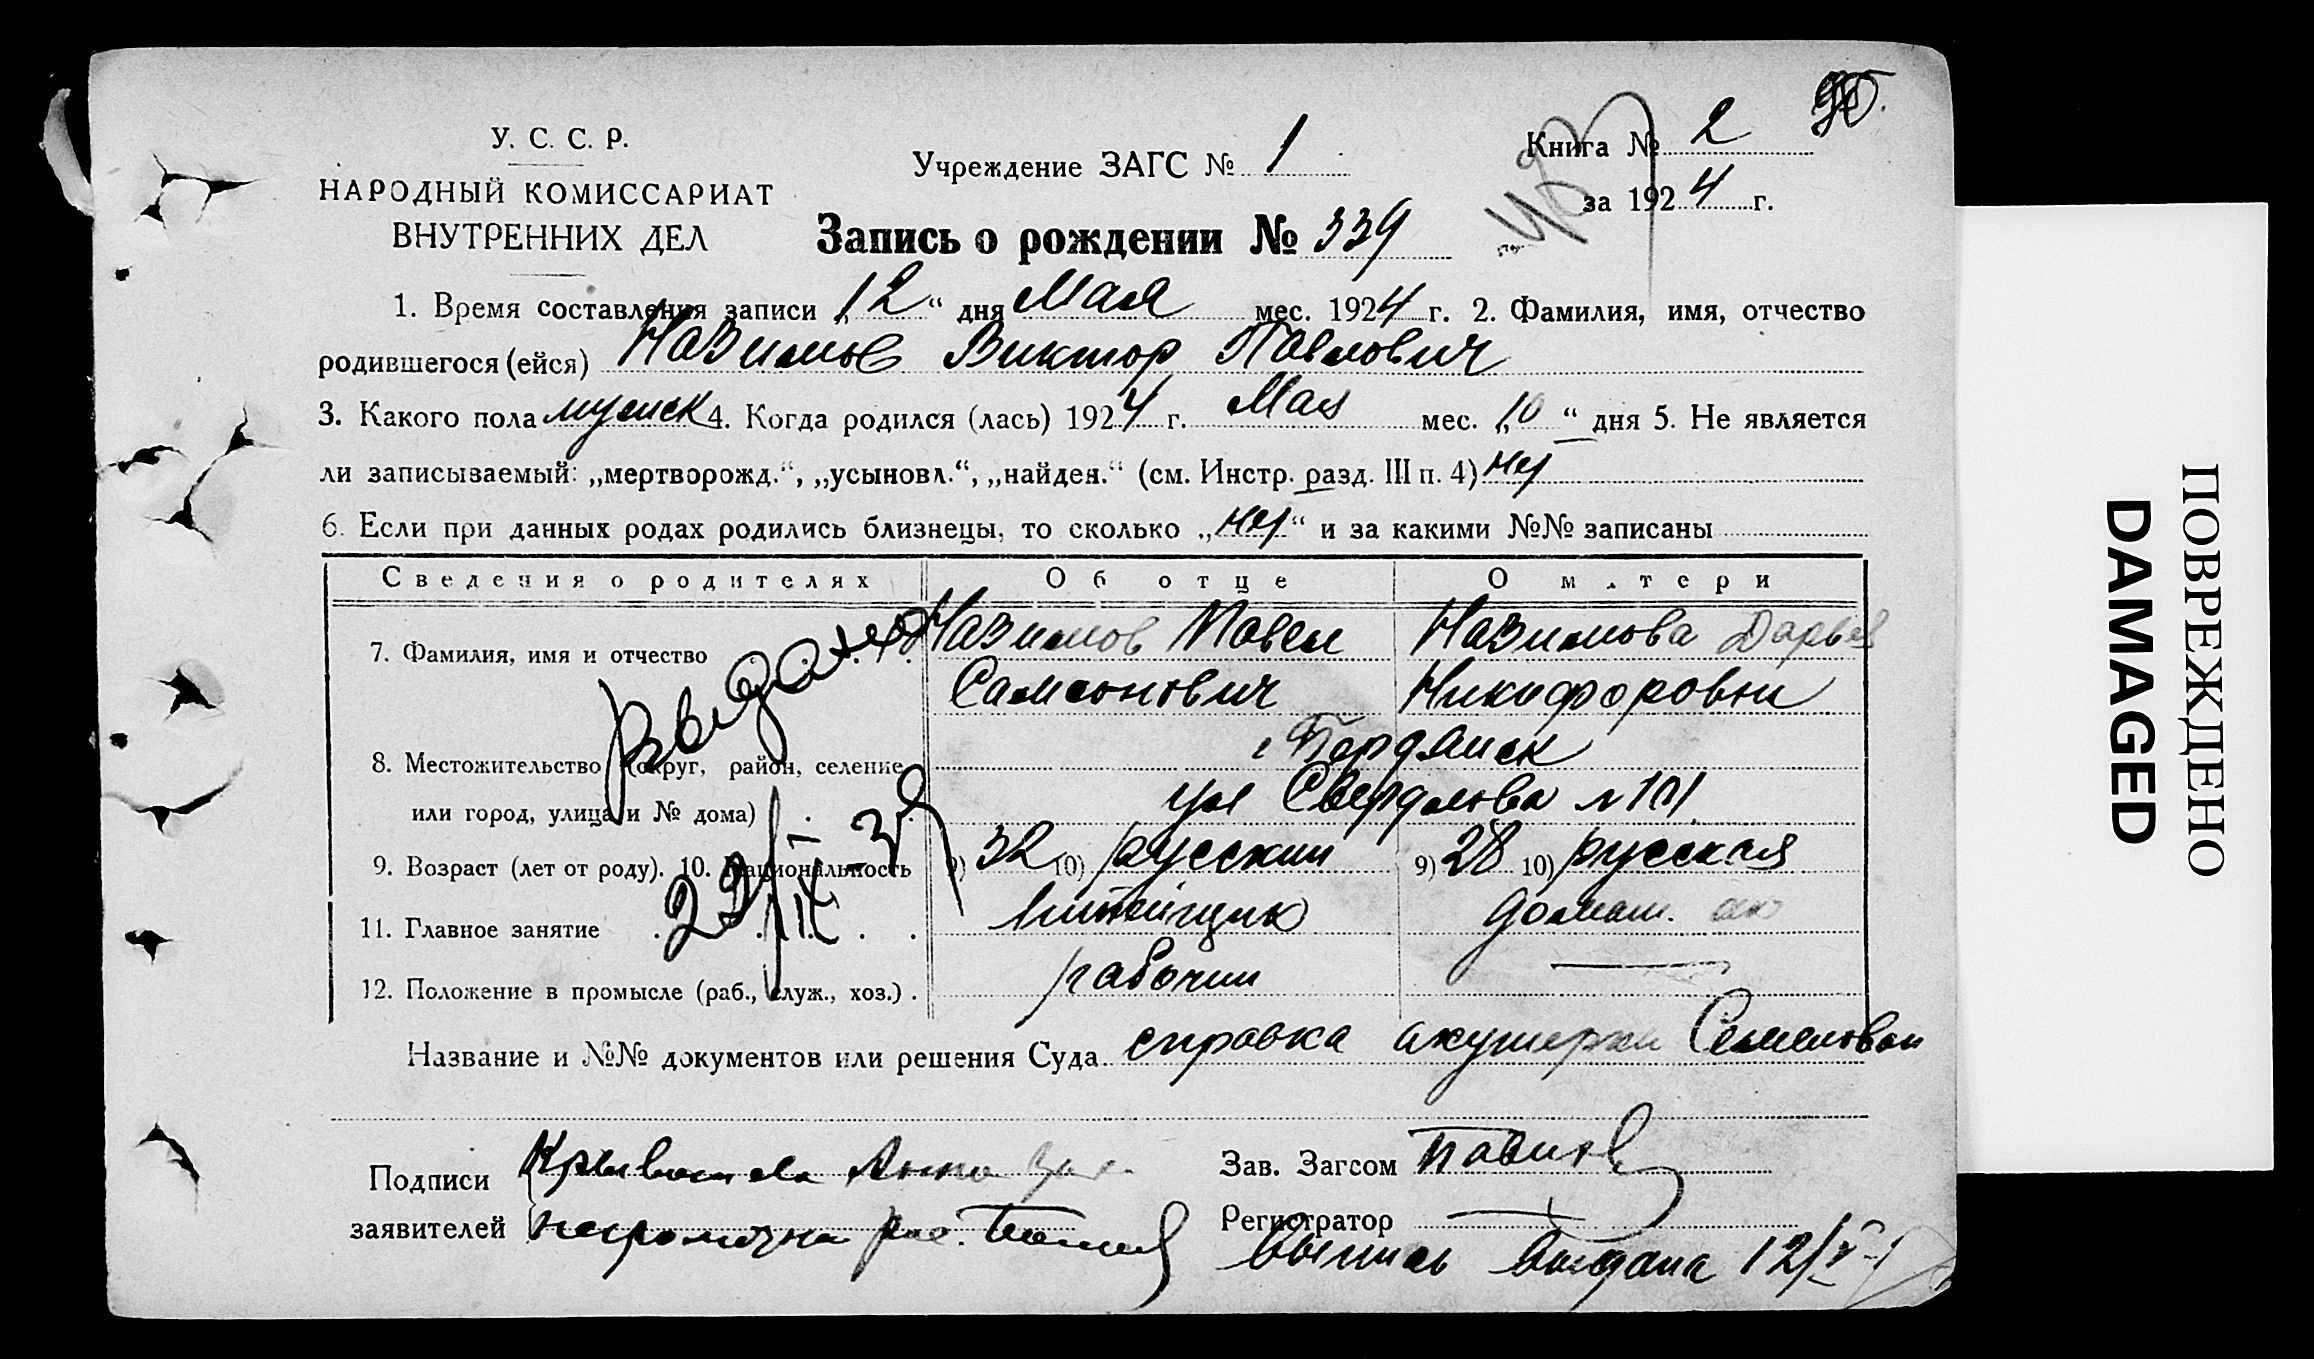 У. С. С. Р.
НАРОДНЫЙ КОМИССАРИАТ
ВНУТРЕННИХ ДЕЛ
Учреждение ЗАГС № 1
Книга № 2
за 1924 г.
Запись о рождении № 339
1. Время составления записи „12“ дня Мая мес. 1924 г. 2. Фамилия, имя, отчество
родившегося (ейся) Назимов Виктор Павлович
3. Какого пола мужск 4. Когда родился (лась) 1924 г. Мая мес. „10“ дня 5. Не является
ли записываемый: „мертворожд.“, „усыновл.“, „найден.“ (см. Инстр. разд. III п. 4) нет
6. Если при данных родах родились близнецы, то сколько „нет“ и за какими №№ записаны
Сведения о родителях Об отце О матери
7. Фамилия, имя и отчество Назимов Павел Назимова Дарья
Самсонович Никифоровн
8. Местожительство (округ, район, селение г Бердянск
или город, улица и № дома) ул Свердлова № 101
9. Возраст (лет от роду). 10. Национальность 9) 32 10) русский 9) 28 10) русская
11. Главное занятие Литейщик домаш.
12. Положение в промысле (раб., служ., хоз.) рабочий —
Выдано
22/IX-39
Название и №№ документов или решения Суда справка акушерки Семеновой
Подписи
заявителей
Анна
неграмотна
Зав. Загсом
Регистратор
Выпись выдана 12/V
ПОВРЕЖДЕНО
DAMAGED